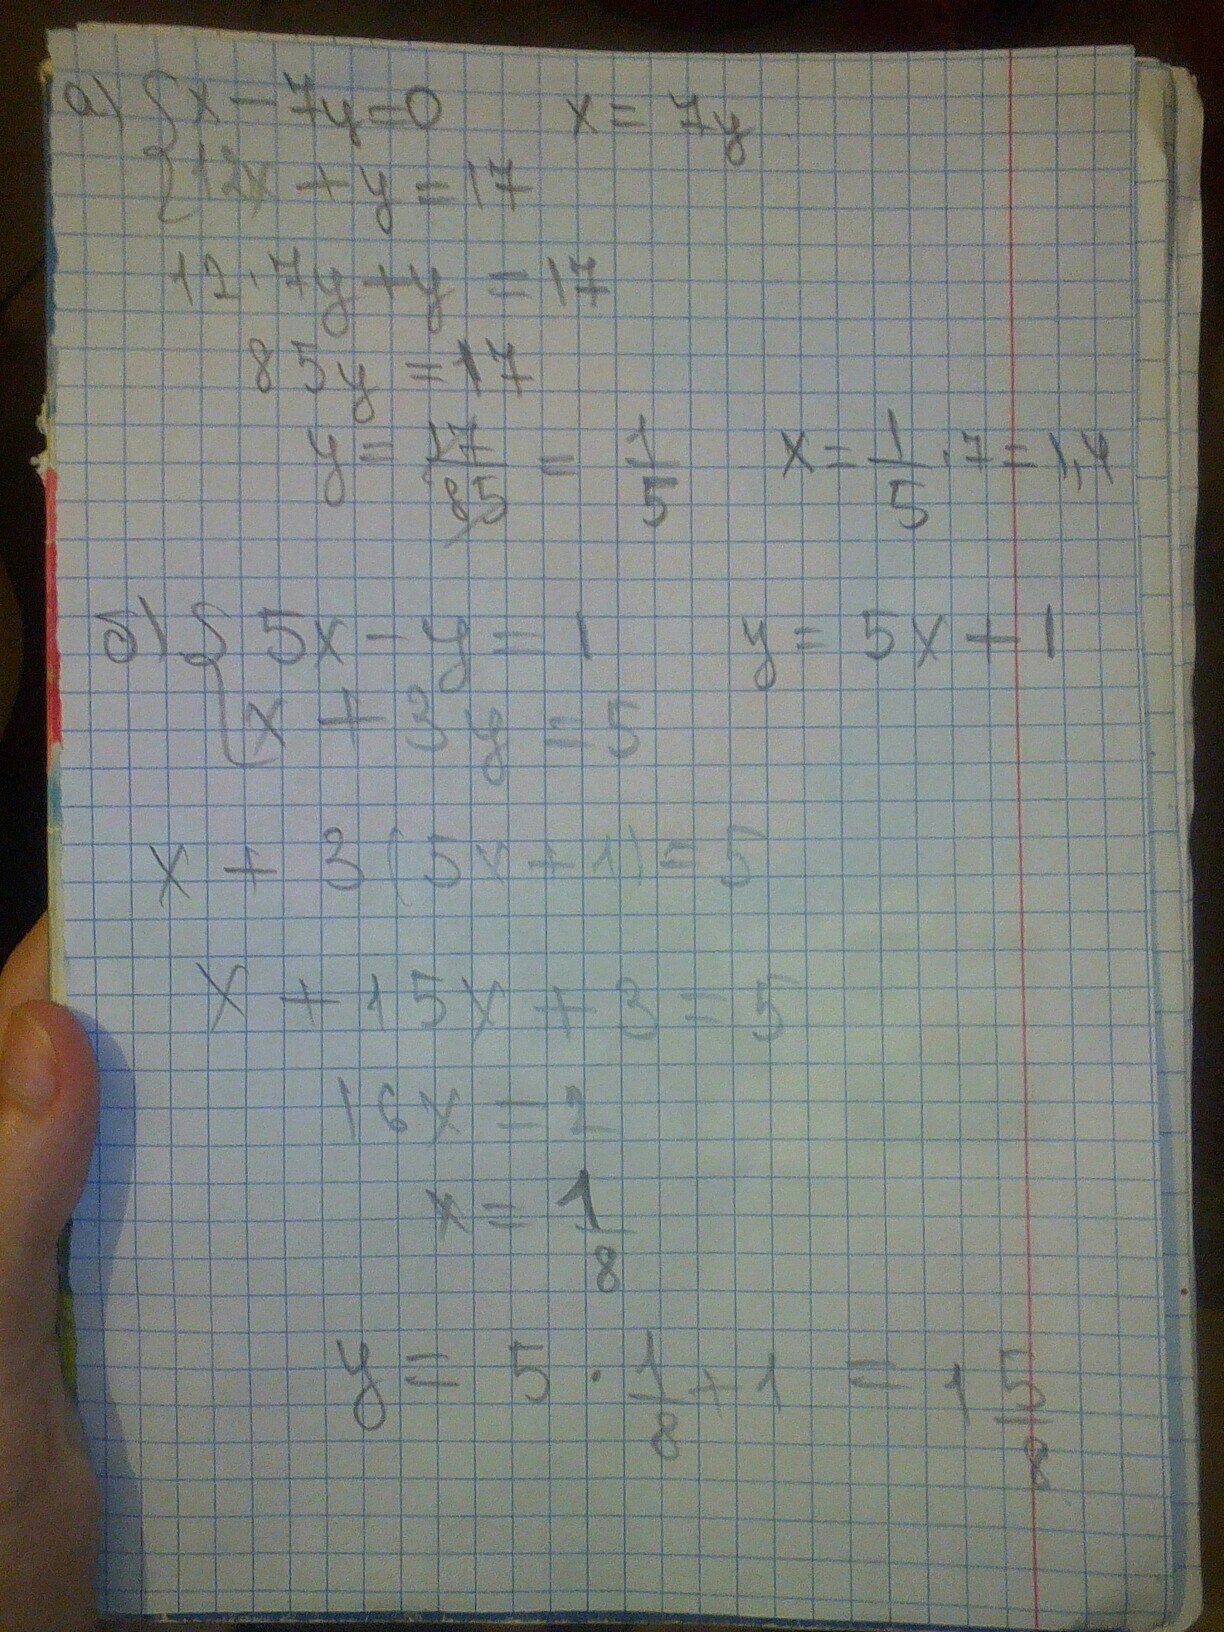 а) { x - 7y = 0    x = 7y
{ 12x + y = 17
12 · 7y + y = 17
85y = 17
y = 17/85 = 1/5    x = 1/5 · 7 = 1,4
б) { 5x - y = 1    y = 5x + 1
{ x + 3y = 5
x + 3(5x + 1) = 5
x + 15x + 3 = 5
16x = 2
x = 1/8
y = 5 · 1/8 + 1 = 1 5/8